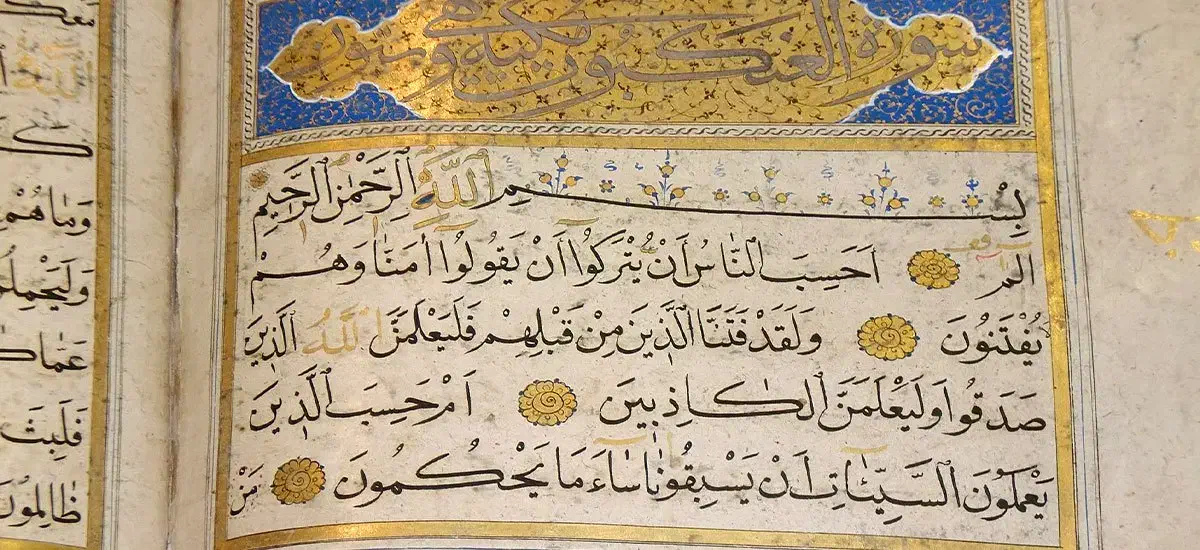 سورة العنكبوت مكية وستون
بِسْمِ اللَّهِ الرَّحْمٰنِ الرَّحِيمِ
الم اَحَسِبَ النَّاسُ أَنْ يُتْرَكُوٓا أَنْ يَقُولُوٓا أٰمَنَّا وَهُمْ
يُفْتَنُونَ وَلَقَدْ فَتَنَّا الَّذِينَ مِنْ قَبْلِهِمْ فَلَيَعْلَمَنَّ اللَّهُ الَّذِينَ
صَدَقُوا وَلَيَعْلَمَنَّ الْكَاذِبِينَ اَمْ حَسِبَ الَّذِينَ
يَعْمَلُونَ السَّيِّـَٔاتِ اَنْ يَسْبِقُونَا سَآءَ مَا يَحْكُمُونَ مَنْ
اللَّهُ
وَمَا هُمْ
فَلَبِثَ
ظَالِمُونَ